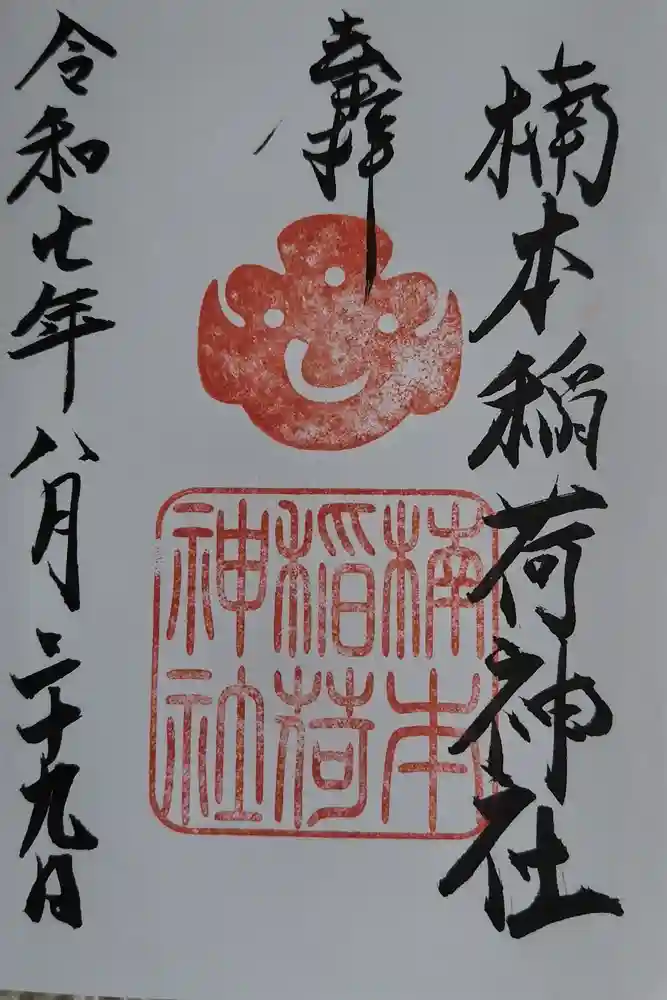 楠本稲荷神社
奉拝
楠本
稲荷
神社
令和七年八月二十九日